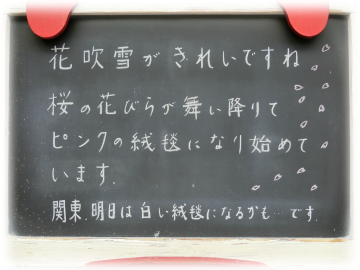 花吹雪がきれいですね
桜の花びらが舞い降りて
ピンクの絨毯になり始めて
います.
関東.明日は白い絨毯になるかも…です.